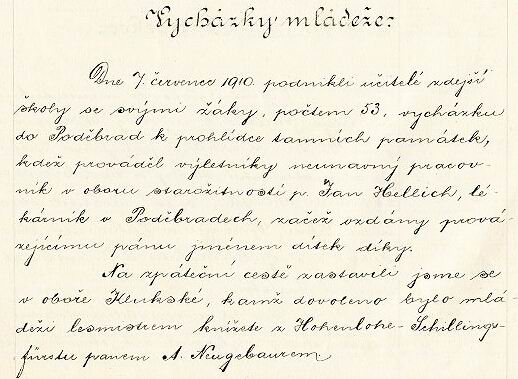 Vycházky mládeže:
Dne 7. července 1910. podnikli učitelé zdejší
školy se svými žáky, počtem 53, vycházku
do Poděbrad k prohlídce tamních památek,
kdež prováděl výletníky neunavný pracov-
ník v oboru starožitností p. Jan Hellich, lé-
kárník v Poděbradech, začež vzdány prová-
zejícímu pánu jménem dítek díky.
Na zpáteční cestě zastavili jsme se
v oboře Klukské, kamž dovoleno bylo mlá-
deži lesmistrem knížete z Hohenlohe-Schillings-
fürstu panem A. Neugebaurem.